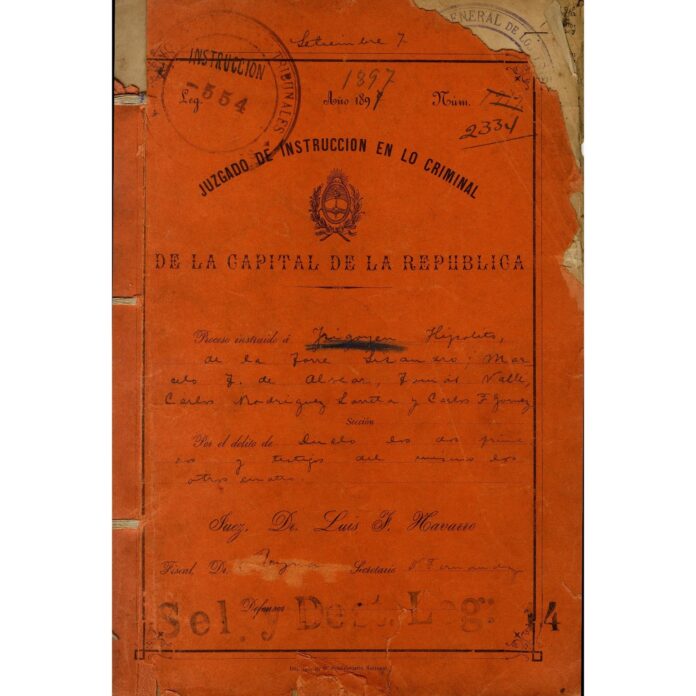 Setiembre 7
ENERAL DE LO
INSTRUCCION
TRIBUNALES
554
1897
Leg. Año 1897 Núm.
2334
JUZGADO DE INSTRUCCION EN LO CRIMINAL
DE LA CAPITAL DE LA REPUBLICA
Proceso instruido á Irigoyen Hipolito,
de la Torre Lisandro; Mar
celo T. de Alvear, Tomás Valle,
Carlos Rodriguez Larreta y Carlos F. Gomez
Sección
Por el delito de Duelo los dos prime
ros y testigos del mismo los
otros cuatro
Juez, Dr. Luis F. Navarro
Fiscal, Dr. Secretario Fernandez
Defensor
Sel. y Dest. Leg: 14